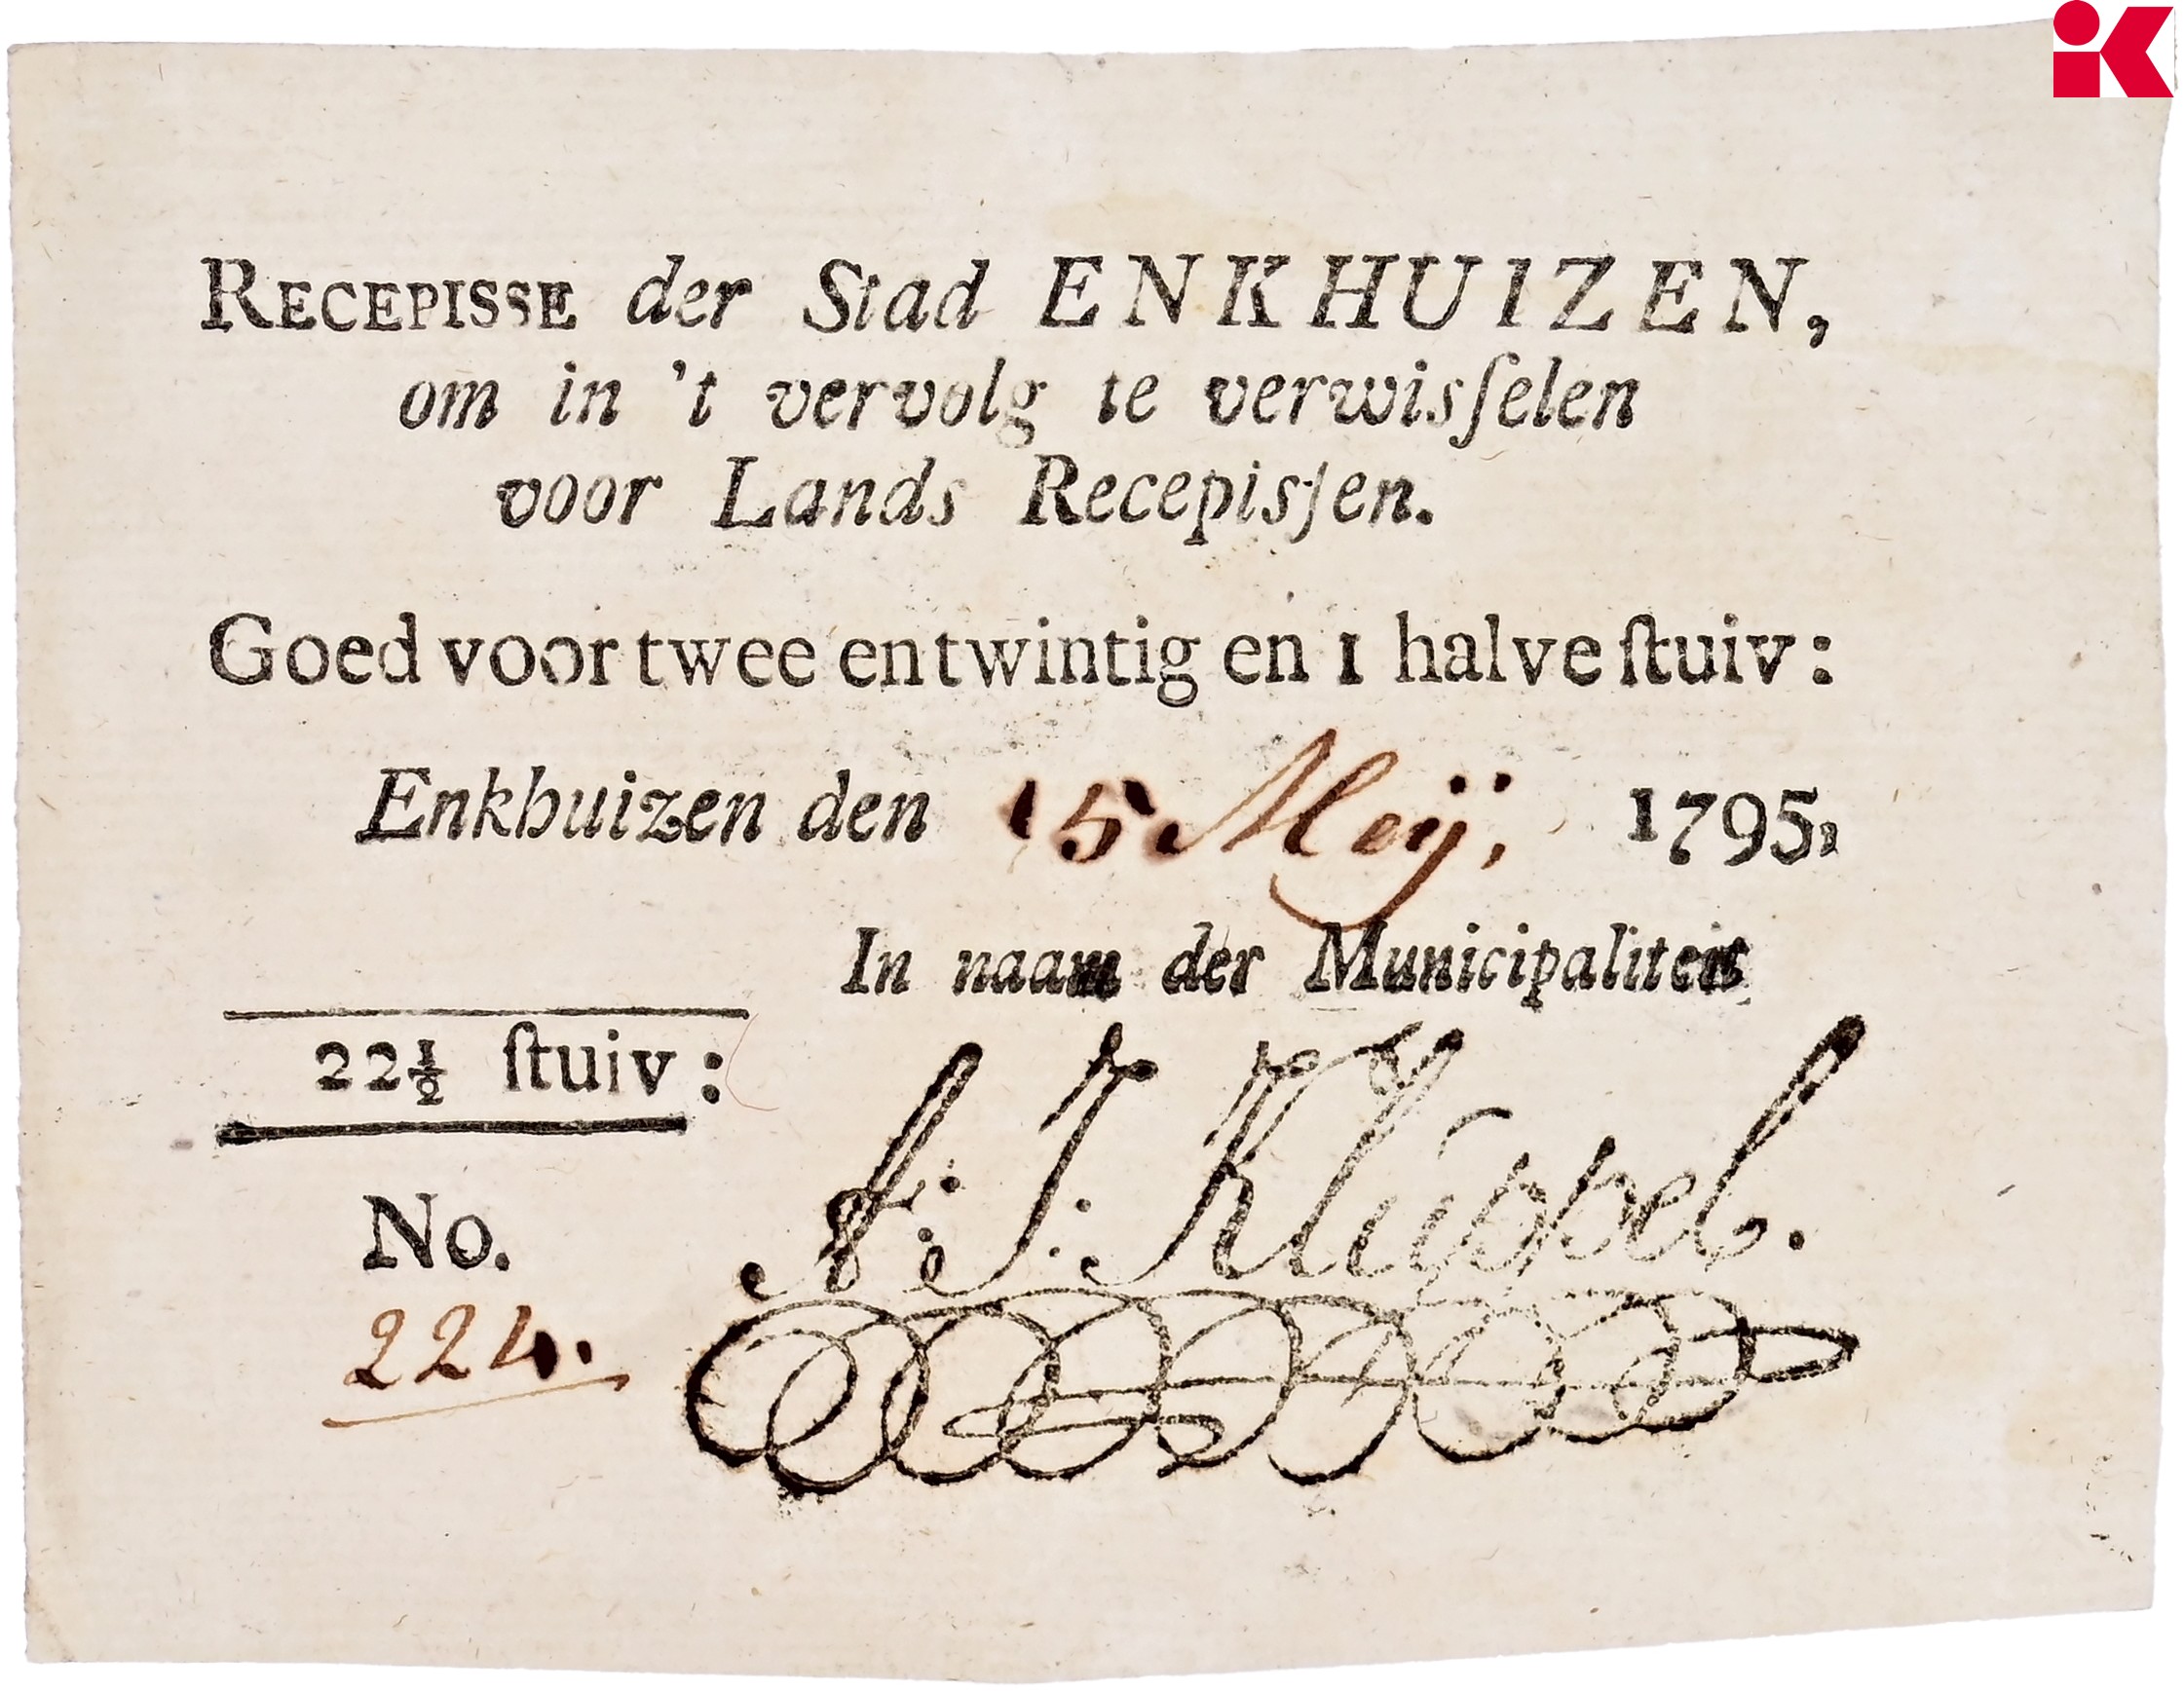 RECEPISSE der Stad ENKHUIZEN,
om in 't vervolg te verwisſelen
voor Lands Recepisſen.
Goed voor twee en twintig en 1 halve ſtuiv:
Enkhuizen den 15 Meij, 1795,
In naam der Municipaliteit
22½ ſtuiv:
A: J: Kluppel.
No.
224.
iK